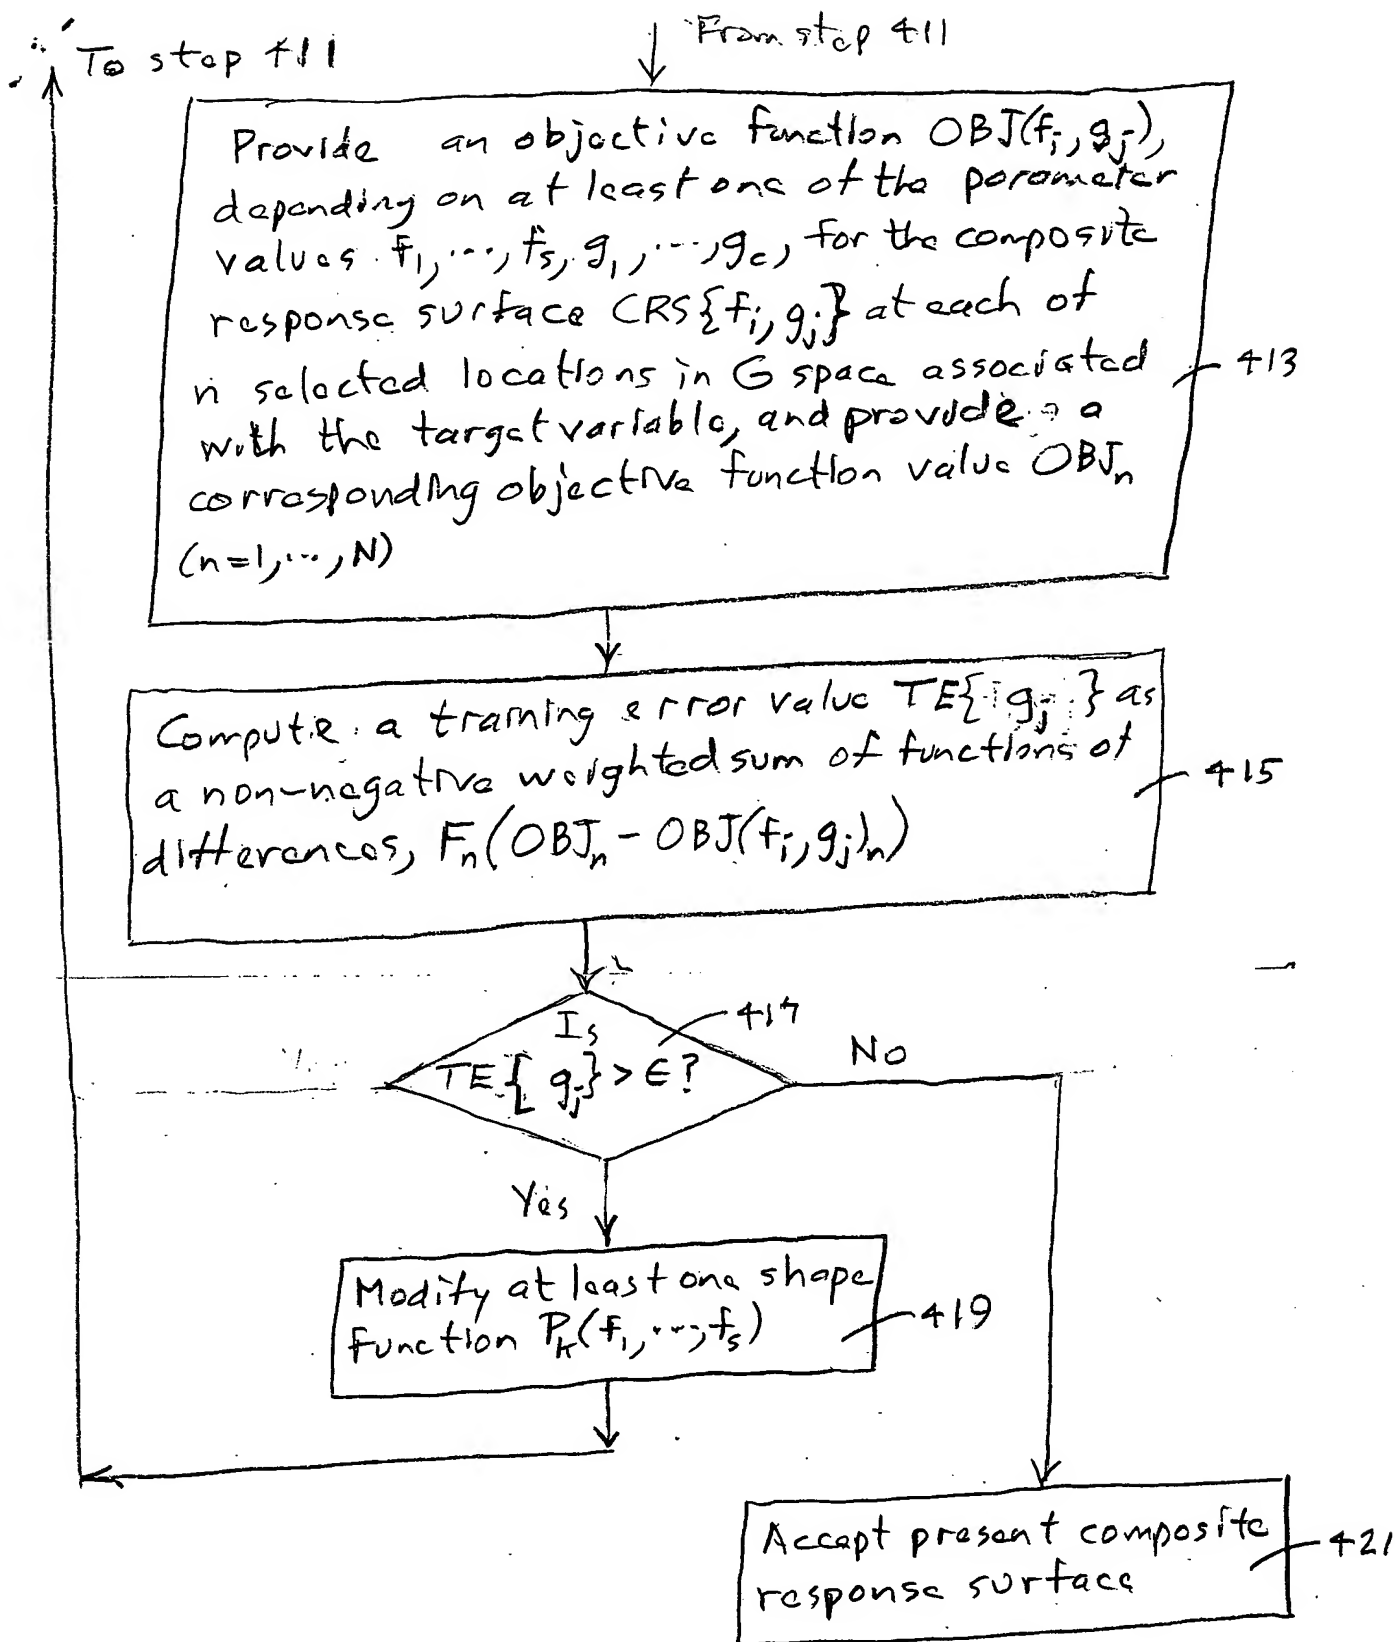 To step 411
From step 411
Provide an objective function OBJ(fᵢ, gⱼ),
depending on at least one of the parameter
values f₁, ..., fₛ, g₁, ..., g_c, for the composite
response surface CRS{fᵢ, gⱼ} at each of
n selected locations in G space associated
with the target variable, and provide a
corresponding objective function value OBJₙ
(n=1, ..., N)
413
Compute a training error value TE{gⱼ} as
a non-negative weighted sum of functions of
differences, Fₙ(OBJₙ - OBJ(fᵢ, gⱼ)ₙ)
415
Is
TE{gⱼ} > ∈?
417
No
Yes
Modify at least one shape
function Pₖ(f₁, ..., fₛ)
419
Accept present composite
response surface
421